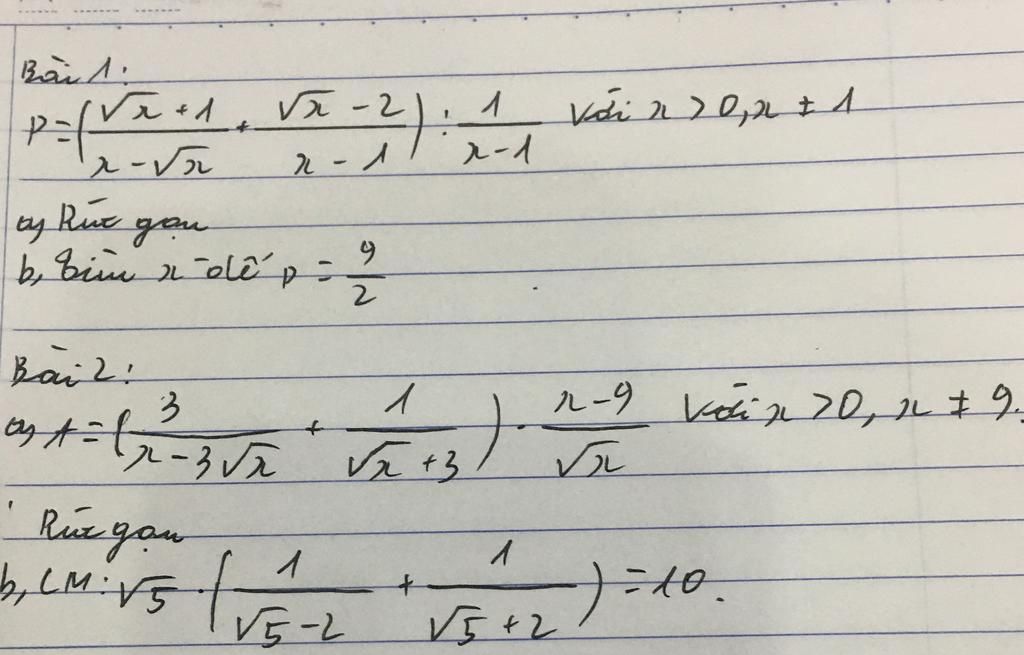 Bài 1:
P = (√x + 1 / x - √x + √x - 2 / x - 1) : 1 / x - 1 Với x > 0, x ≠ 1
a, Rút gọn
b, Tìm x để P = 9 / 2
Bài 2:
a, A = (3 / x - 3√x + 1 / √x + 3) . x - 9 / √x Với x > 0, x ≠ 9.
Rút gọn
b, CM: √5 . (1 / √5 - 2 + 1 / √5 + 2) = 10.